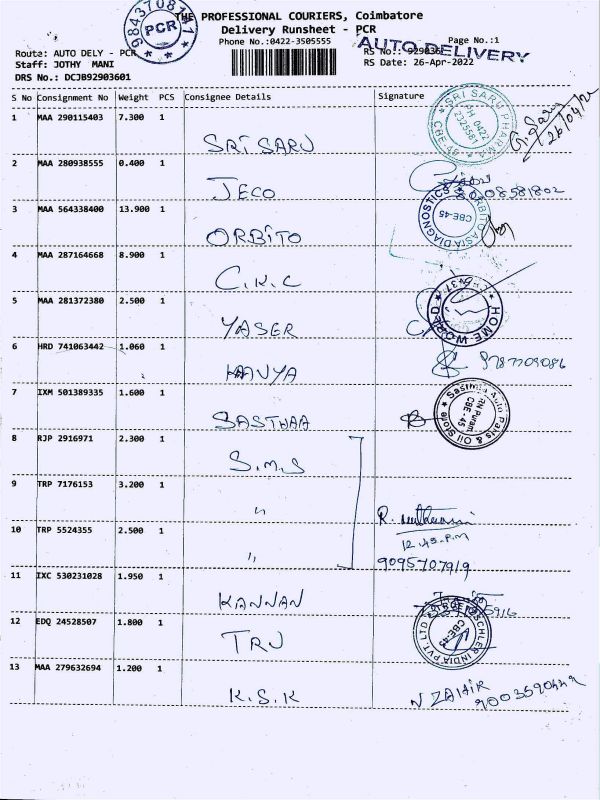 THE PROFESSIONAL COURIERS, Coimbatore
Delivery Runsheet - PCR
Phone No.:0422-3505555
Page No.:1
9843708141
PCR
AUTO DELIVERY
Route: AUTO DELY - PCR
RS No.: 929836
Staff: JOTHY MANI
RS Date: 26-Apr-2022
DRS No.: DCJB92903601
S No Consignment No Weight PCS Consignee Details Signature
1 MAA 290115403 7.300 1 SRI SARU
SRI SARU PHARMA
PH 0422 2325561
CBE-45
26/04/22
2 MAA 280938555 0.400 1 JECO
3 MAA 564338400 13.900 1 ORBITO
ORBITO ASIA DIAGNOSTICS
CBE-45
4 MAA 287164668 8.900 1 C.K.C
5 MAA 281372380 2.500 1 YASER
HOME WORLD
6 HRD 741063442 1.060 1 KAVYA
7 IXM 501389335 1.600 1 SASTHAA
Sastha Auto Parts & Oil Store
RN Puram
CBE-45
8 RJP 2916971 2.300 1 S.M.S
9 TRP 7176153 3.200 1 "
10 TRP 5524355 2.500 1 "
12.45 P.M
9095707919
11 IXC 530231028 1.950 1 KANNAN
12 EDQ 24528507 1.800 1 TRJ
INDIA PVT LTD
CBE-45
13 MAA 279632694 1.200 1 K.S.K
N ZAHIR